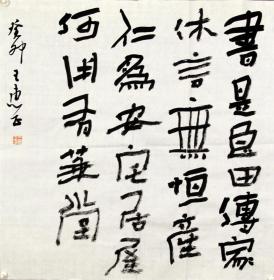 書是良田傳家
休言無恒産
仁為安宅居屋
何用有華堂
癸卯 王惠民